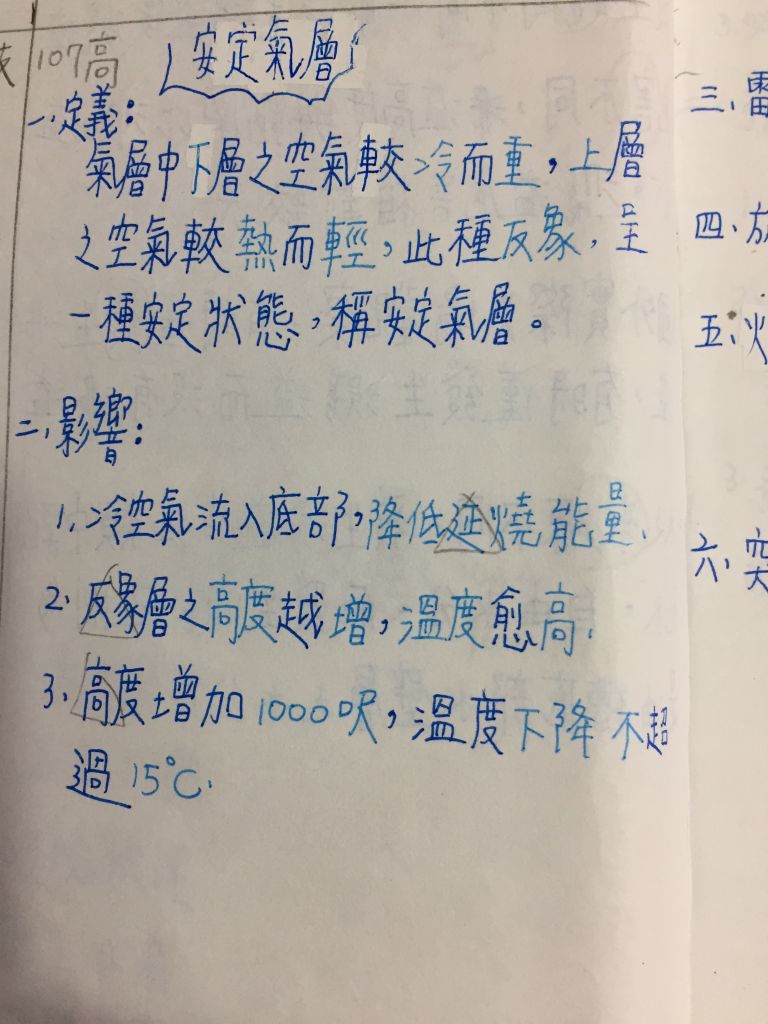 107高
安定氣層
一、定義:
氣層中下層之空氣較冷而重,上層
之空氣較熱而輕,此種反象,呈
一種安定狀態,稱安定氣層。
二、影響:
1、冷空氣流入底部,降低延燒能量.
2、反象層之高度越增,溫度愈高.
3、高度增加1000呎,溫度下降不超
過15℃.
三、雷
四、放
五、火
六、突